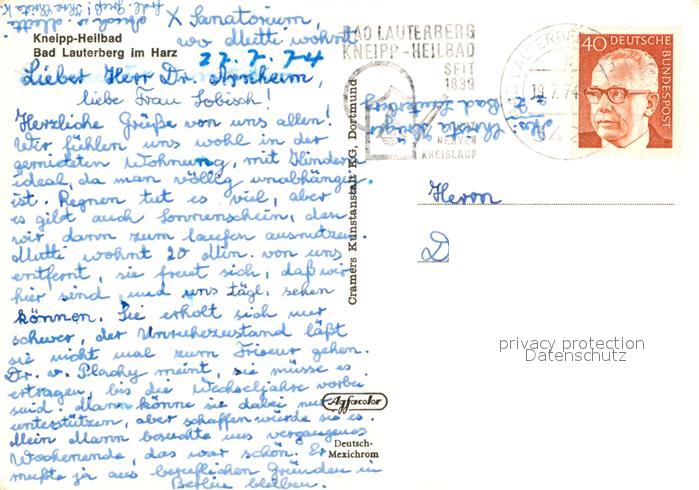 X Sanatorium,
wo Mutti wohnt
Kneipp-Heilbad
Bad Lauterberg im Harz
27.7.74
Lieber Herr Dr. Arnheim,
liebe Frau Lobisch!
Herzliche Grüße von uns allen!
Wir fühlen uns wohl in der
gemieteten Wohnung, mit Kindern
ideal, da man völlig unabhängig
ist. Regnen tut es viel, aber
es gibt auch Sonnenschein, den
wir dann zum laufen ausnutzen.
Mutti wohnt 20 Min. von uns
entfernt, sie freut sich, daß wir
hier sind und uns tägl. sehen
können. Sie erholt sich nur
schwer, der Unruhezustand läßt
sie nicht mal zum Friseur gehen.
Dr. v. Plachy meint, sie müsse es
ertragen, bis die Wechseljahre vorbei
sind. Mann könne sie dabei nur
unterstützen, aber schaffen würde sie es.
Mein Mann besuchte uns vergangenes
Wochenende, das war schön. Er
mußte ja aus beruflichen Gründen in
Berlin bleiben.
Cramers Kunstanstalt KG, Dortmund
Agfacolor
Deutsch-
Mexichrom
BAD LAUTERBERG
KNEIPP-HEILBAD
SEIT
1839
HERZ
NERVEN
KREISLAUF
19.7.74
40 DEUTSCHE
BUNDESPOST
Christa
z. Z. Bad Lauterberg
Herrn
D
privacy protection
Datenschutz